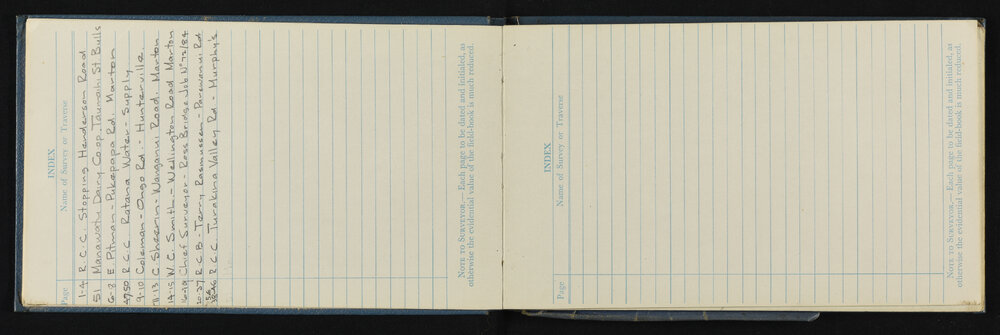 INDEX
Page Name of Survey or Traverse
1-4 R. C. C. Stopping Henderson Road
51 Manawatu Dairy Co op. Taumaihi St. Bulls
6-8 E Pitman - Pukepapa Rd. Marton
47,50 R C C Ratana Water - Supply
9-10 Coleman - Ongo Rd. - Hunterville
11-13 C Sheerin - Wanganui Road. Marton
14-15 W. C. Smith. - Wellington Road Marton
16-19 Chief Surveyor - Ross Bridge Job Nº 72/84
20-37 R C B - Terry Rasmussen - Parewanui Rd
R C C Turakina Valley Rd - Murphy's
NOTE TO SURVEYOR.— Each page to be dated and initialed, as
otherwise the evidential value of the field-book is much reduced.
INDEX
Page Name of Survey or Traverse
NOTE TO SURVEYOR.— Each page to be dated and initialed, as
otherwise the evidential value of the field-book is much reduced.